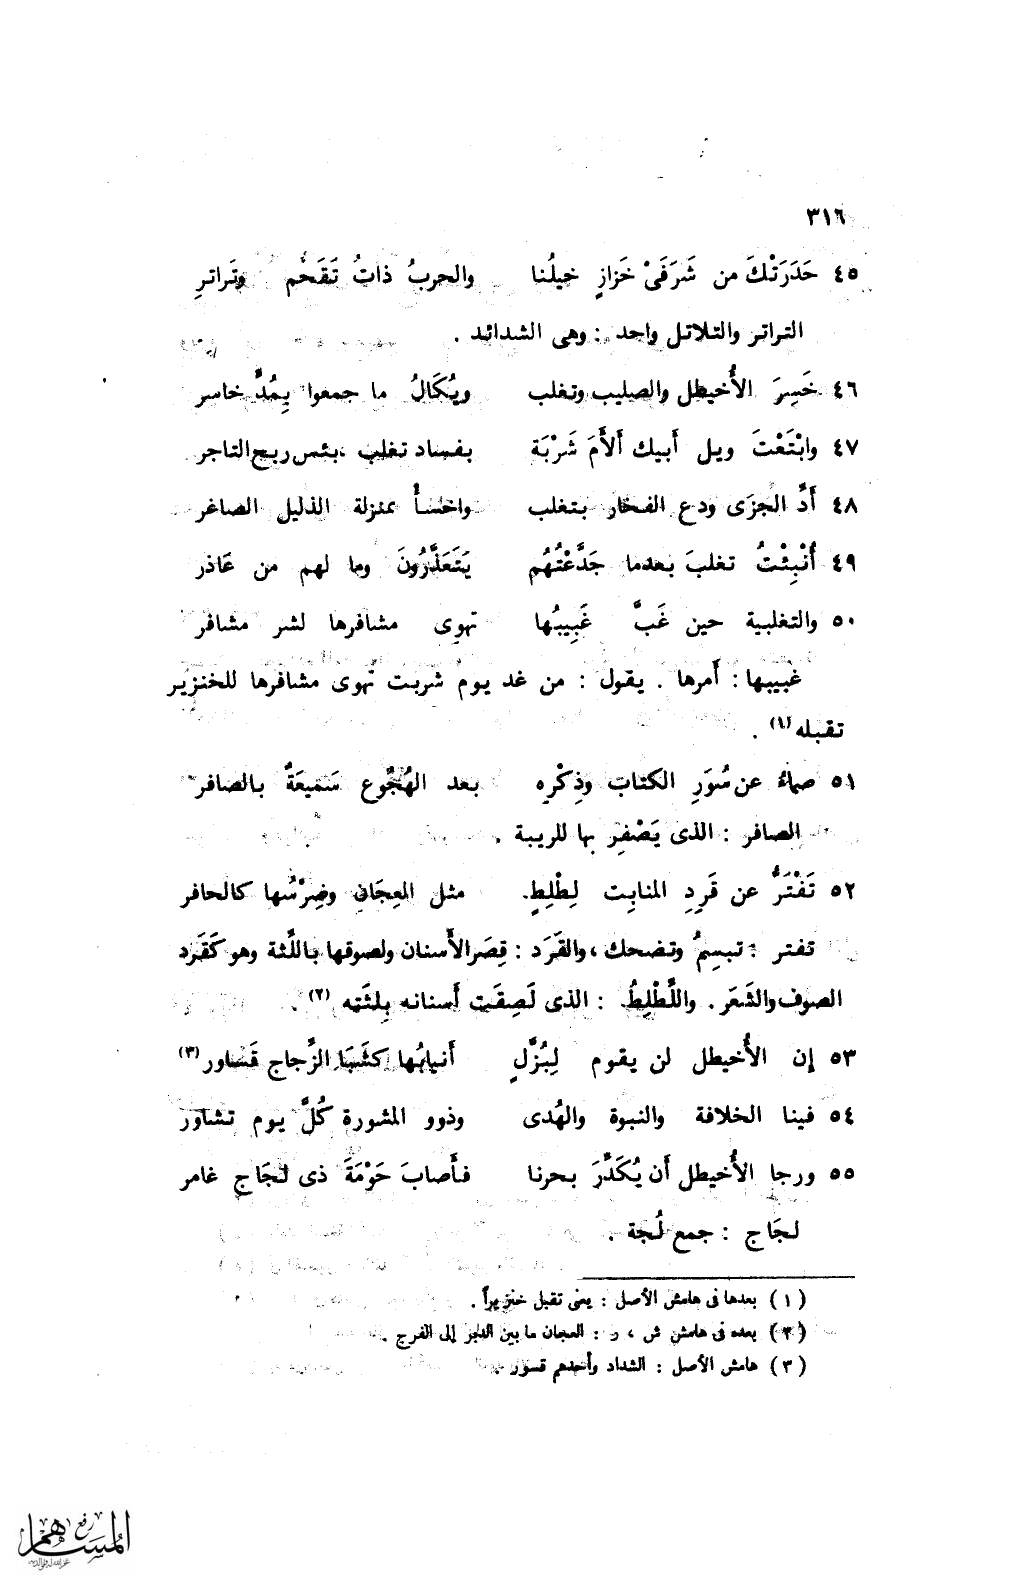 ٣١٦
٤٥ حَدَرَتْكَ من شَرَفَىْ خَزازٍ خيلُنا والحربُ ذاتُ تَقَحُّم وتَراترِ
التراتر والتلاتل واحد : وهى الشدائد .
٤٦ خَسِرَ الأُخيطل والصليب وتغلب ويُكَالُ ما جمعوا بِمُدٍّ خاسر
٤٧ وابْتَعْتَ ويل أَبيك أَلأَمَ شَرْبَة بفساد تغلب ، بئس ربح التاجر
٤٨ أَدِّ الجزَى ودع الفخار بتغلب واخسأْ بمنزلة الذليل الصاغر
٤٩ أُنْبِئْتُ تغلبَ بعدما جَدَّعْتُهُم يَتَعَذَّرُونَ وما لهم من عَاذر
٥٠ والتغلبية حين غَبَّ غَبِيبُها تهوى مشافرها لشر مشافر
غبيبها : أَمرها . يقول : من غد يوم شربت تهوى مشافرها للخنزير
تقبله (١) .
٥١ صماءُ عن سُوَرِ الكتاب وذِكْرِه بعد الهُجُوع سَميعَةٌ بالصافر
الصافر : الذى يَصْفِر بها للريبة .
٥٢ تَفْتَرُّ عن قَرِدِ المنابِت لِطْلِطٍ مثل العِجَانِ وضِرْسُها كالحافر
تفتر : تبسِمُ وتضحك ، والقَرَد : قِصَر الأَسنان ولصوقها باللَّثة وهو كَقَرَد
الصوف والشَعَر . واللَّطْلِطُ : الذى لَصِقَت أَسنانه بِلثَته (٢) .
٥٣ إن الأُخيطل لن يقوم لِبُزَّلٍ أَنيابُها كشَبَا الزَّجاج قَساور (٣)
٥٤ فينا الخلافة والنبوة والهُدى وذوو المشورة كُلَّ يوم تشاور
٥٥ ورجا الأُخيطل أَن يُكَدِّرَ بحرنا فأَصابَ حَوْمَةَ ذى لَجَاج غامر
لجَاج : جمع لُجة .
(١) بعدها فى هامش الأصل : يعنى تقبل خنزيراً .
(٢) بعده فى هامش ش ، ر : العجان ما بين الدبر إلى الفرج .
(٣) هامش الأصل : الشداد وأحدهم قسور .
رفع
المساهم